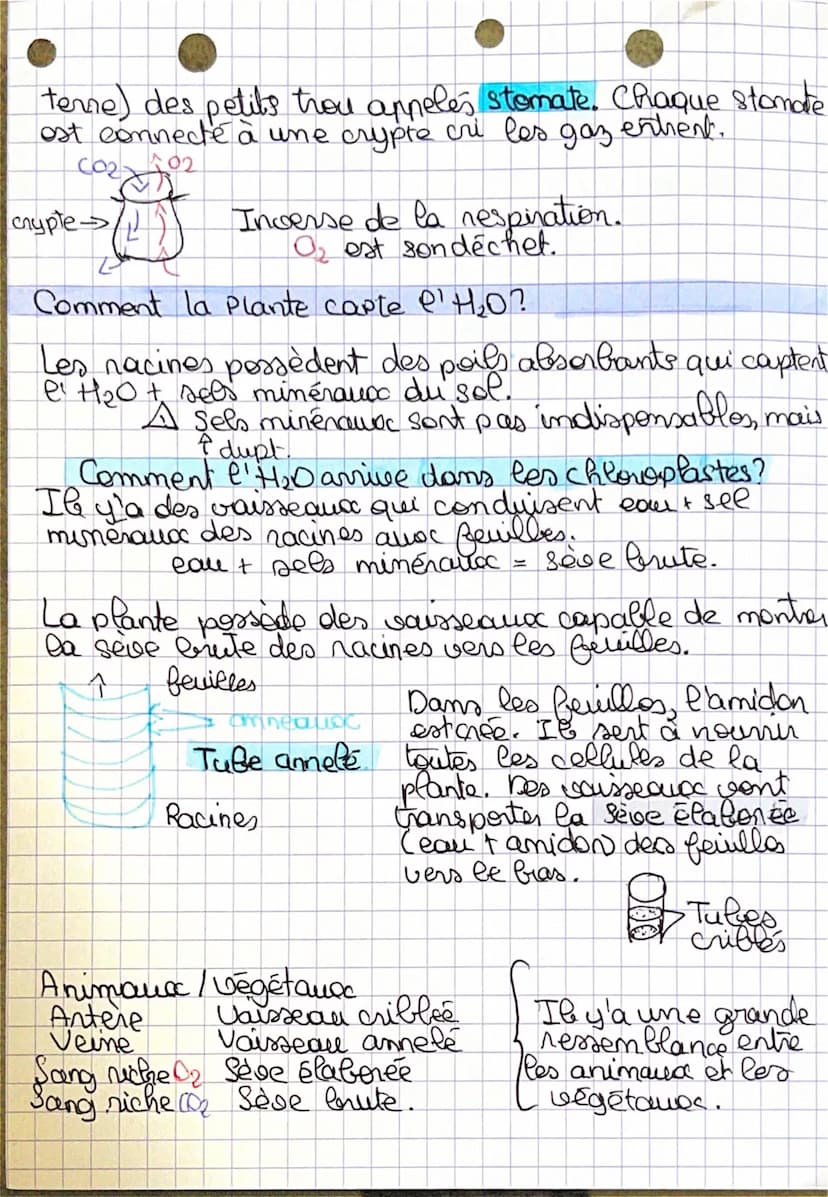 terre) des petits trou appelés stomate. Chaque stomate
est connecté à une crypte où les gaz entrent.
CO2 O2
crypte →
Inverse de la respiration.
O2 est son déchet.
Comment la plante capte l'H2O?
Les racines possèdent des poils absorbants qui captent
l'H2O + sels minéraux du sol.
⚠ Sels minéraux sont pas indispensables, mais
↑ dvpt.
Comment l'H2O arrive dans les chloroplastes?
Il y'a des vaisseaux qui conduisent eau + sel
minéraux des racines aux feuilles.
eau + sels minéraux = sève brute.
La plante possède des vaisseaux capable de monter
la sève brute des racines vers les feuilles.
↑ feuilles
anneaux
Tube annelé
Racines
Dans les feuilles, l'amidon
est créé. Il sert à nourrir
toutes les cellules de la
plante. Des vaisseaux vont
transporter la sève élaborée
(eau + amidon) des feuilles
vers le bas.
Tubes
criblés
Animaux / végétaux
Artère Vaisseau criblée
Veine Vaisseau annelé
Sang riche O2 Sève élaborée
Sang riche CO2 Sève brute.
Il y'a une grande
ressemblance entre
les animaux et les
végétaux.